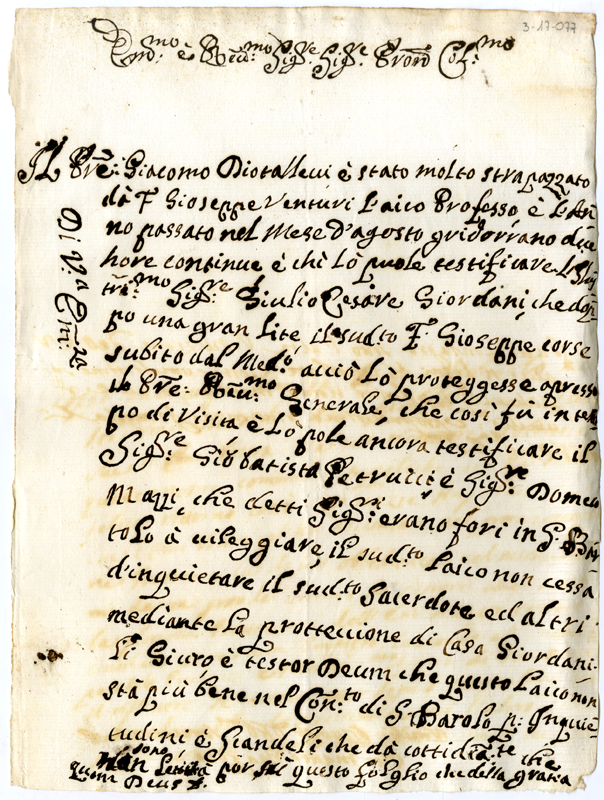 3-17-077
Em.mo è Reu:mo Sig.re Sig.re Pron Col:mo
Il Pre: Giacomo Diotalleui è stato molto strapazzato
dà F. Gioseppe Venturi Laico Professo, è l'An
no passato nel Mese d'agosto gridorrano due
hore continue è chi lò puole testificare l'Illus
tri:mo Sig:re Giulio Cesare Giordani, che dop
po una gran lite il sudto F. Gioseppe corse
subito dal Med:o acciò lò proteggesse apresso
il Pre: Reu:mo Generale, che così fù in tem
po di Visita è lò pole ancora testificare il
Sig:re Giobatista Petrucci è Sig:re Domeco
Mazzi, che detti Sig:ri erano fori in S. Bar
tolo à uileggiare, il sud:to Laico non cessà
d'inquietare il sud:to Sacerdote ed altri
mediante la prottectione di Casa Giordani.
Li Giuro è testor Deum che questo Laico non
stà più bene nel Con:to di S. Barolo p: Inquie
tudini è Scandeli che dà cottidia:te che
sono questo foglio che della gratia
quam Deus
Di V.a Em:za